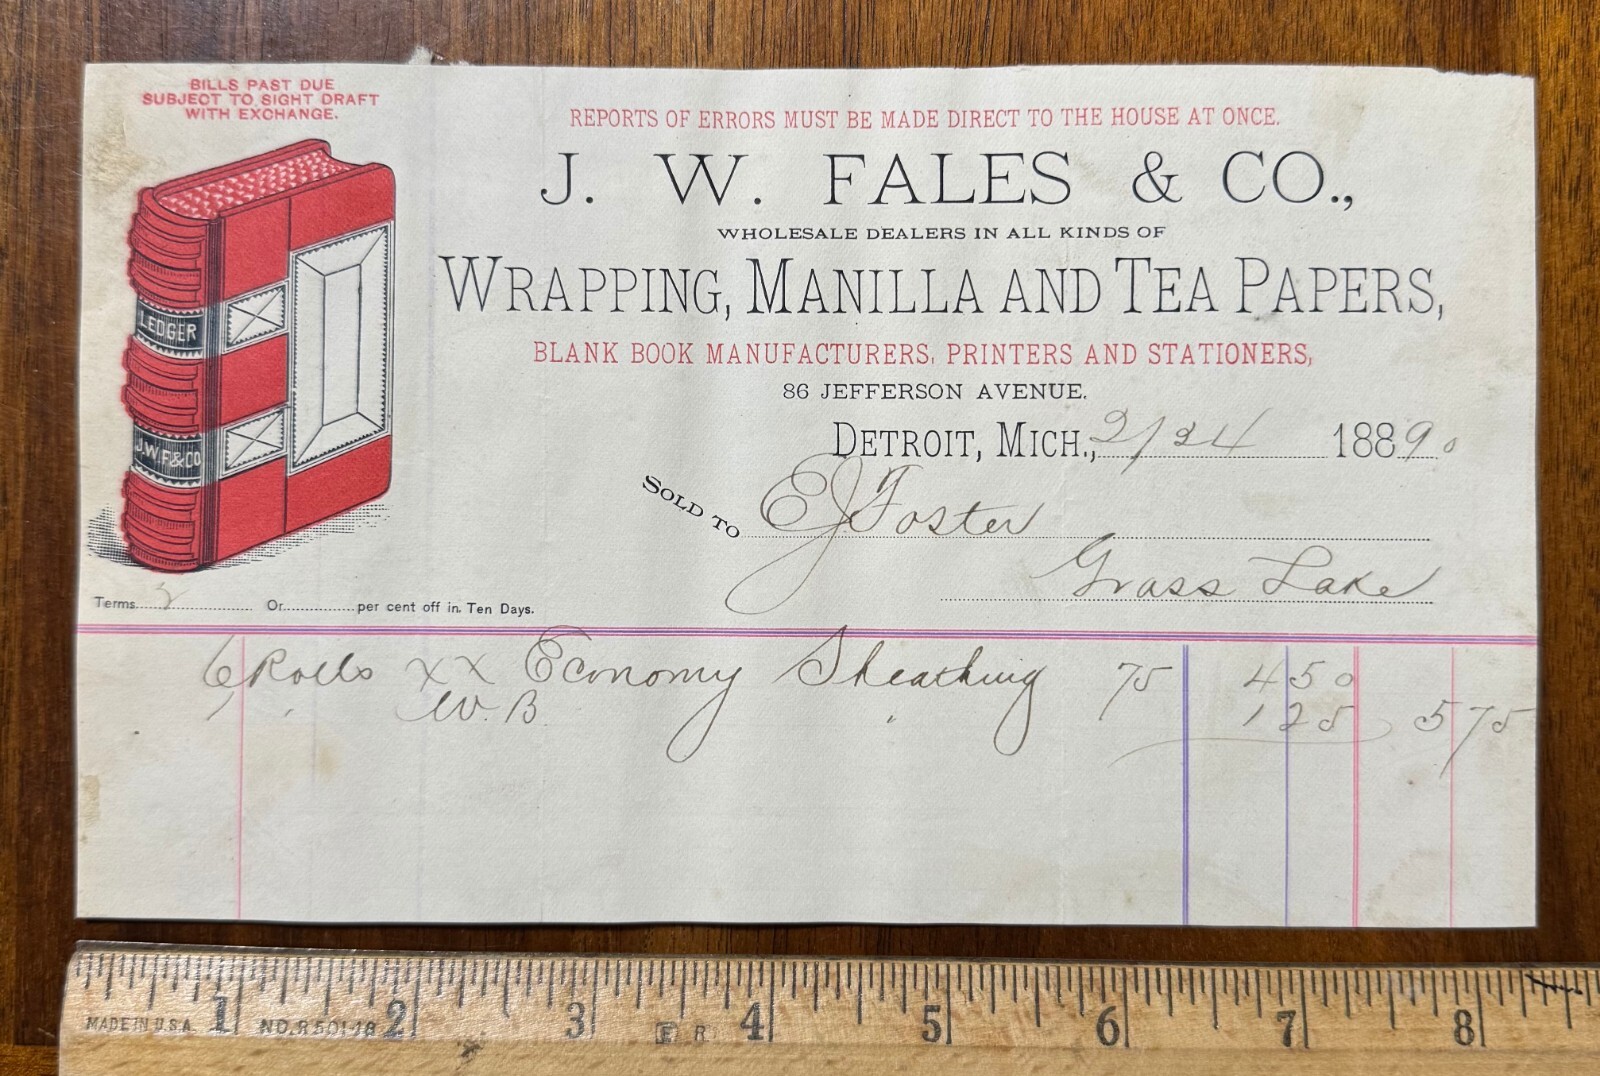 BILLS PAST DUE
SUBJECT TO SIGHT DRAFT
WITH EXCHANGE.
REPORTS OF ERRORS MUST BE MADE DIRECT TO THE HOUSE AT ONCE.
J. W. FALES & CO.,
WHOLESALE DEALERS IN ALL KINDS OF
WRAPPING, MANILLA AND TEA PAPERS,
BLANK BOOK MANUFACTURERS, PRINTERS AND STATIONERS,
86 JEFFERSON AVENUE.
LEDGER
J.W.F.&CO
DETROIT, MICH., 2/24 18890
SOLD TO E J Foster
Grass Lake
Terms Or per cent off in Ten Days.
6 Rolls XX Economy Sheathing 75 4 50
W.B. 1 25 5 75
MADE IN U.S.A. 1 NO.R501-18 2 3 E R 4 5 6 7 8